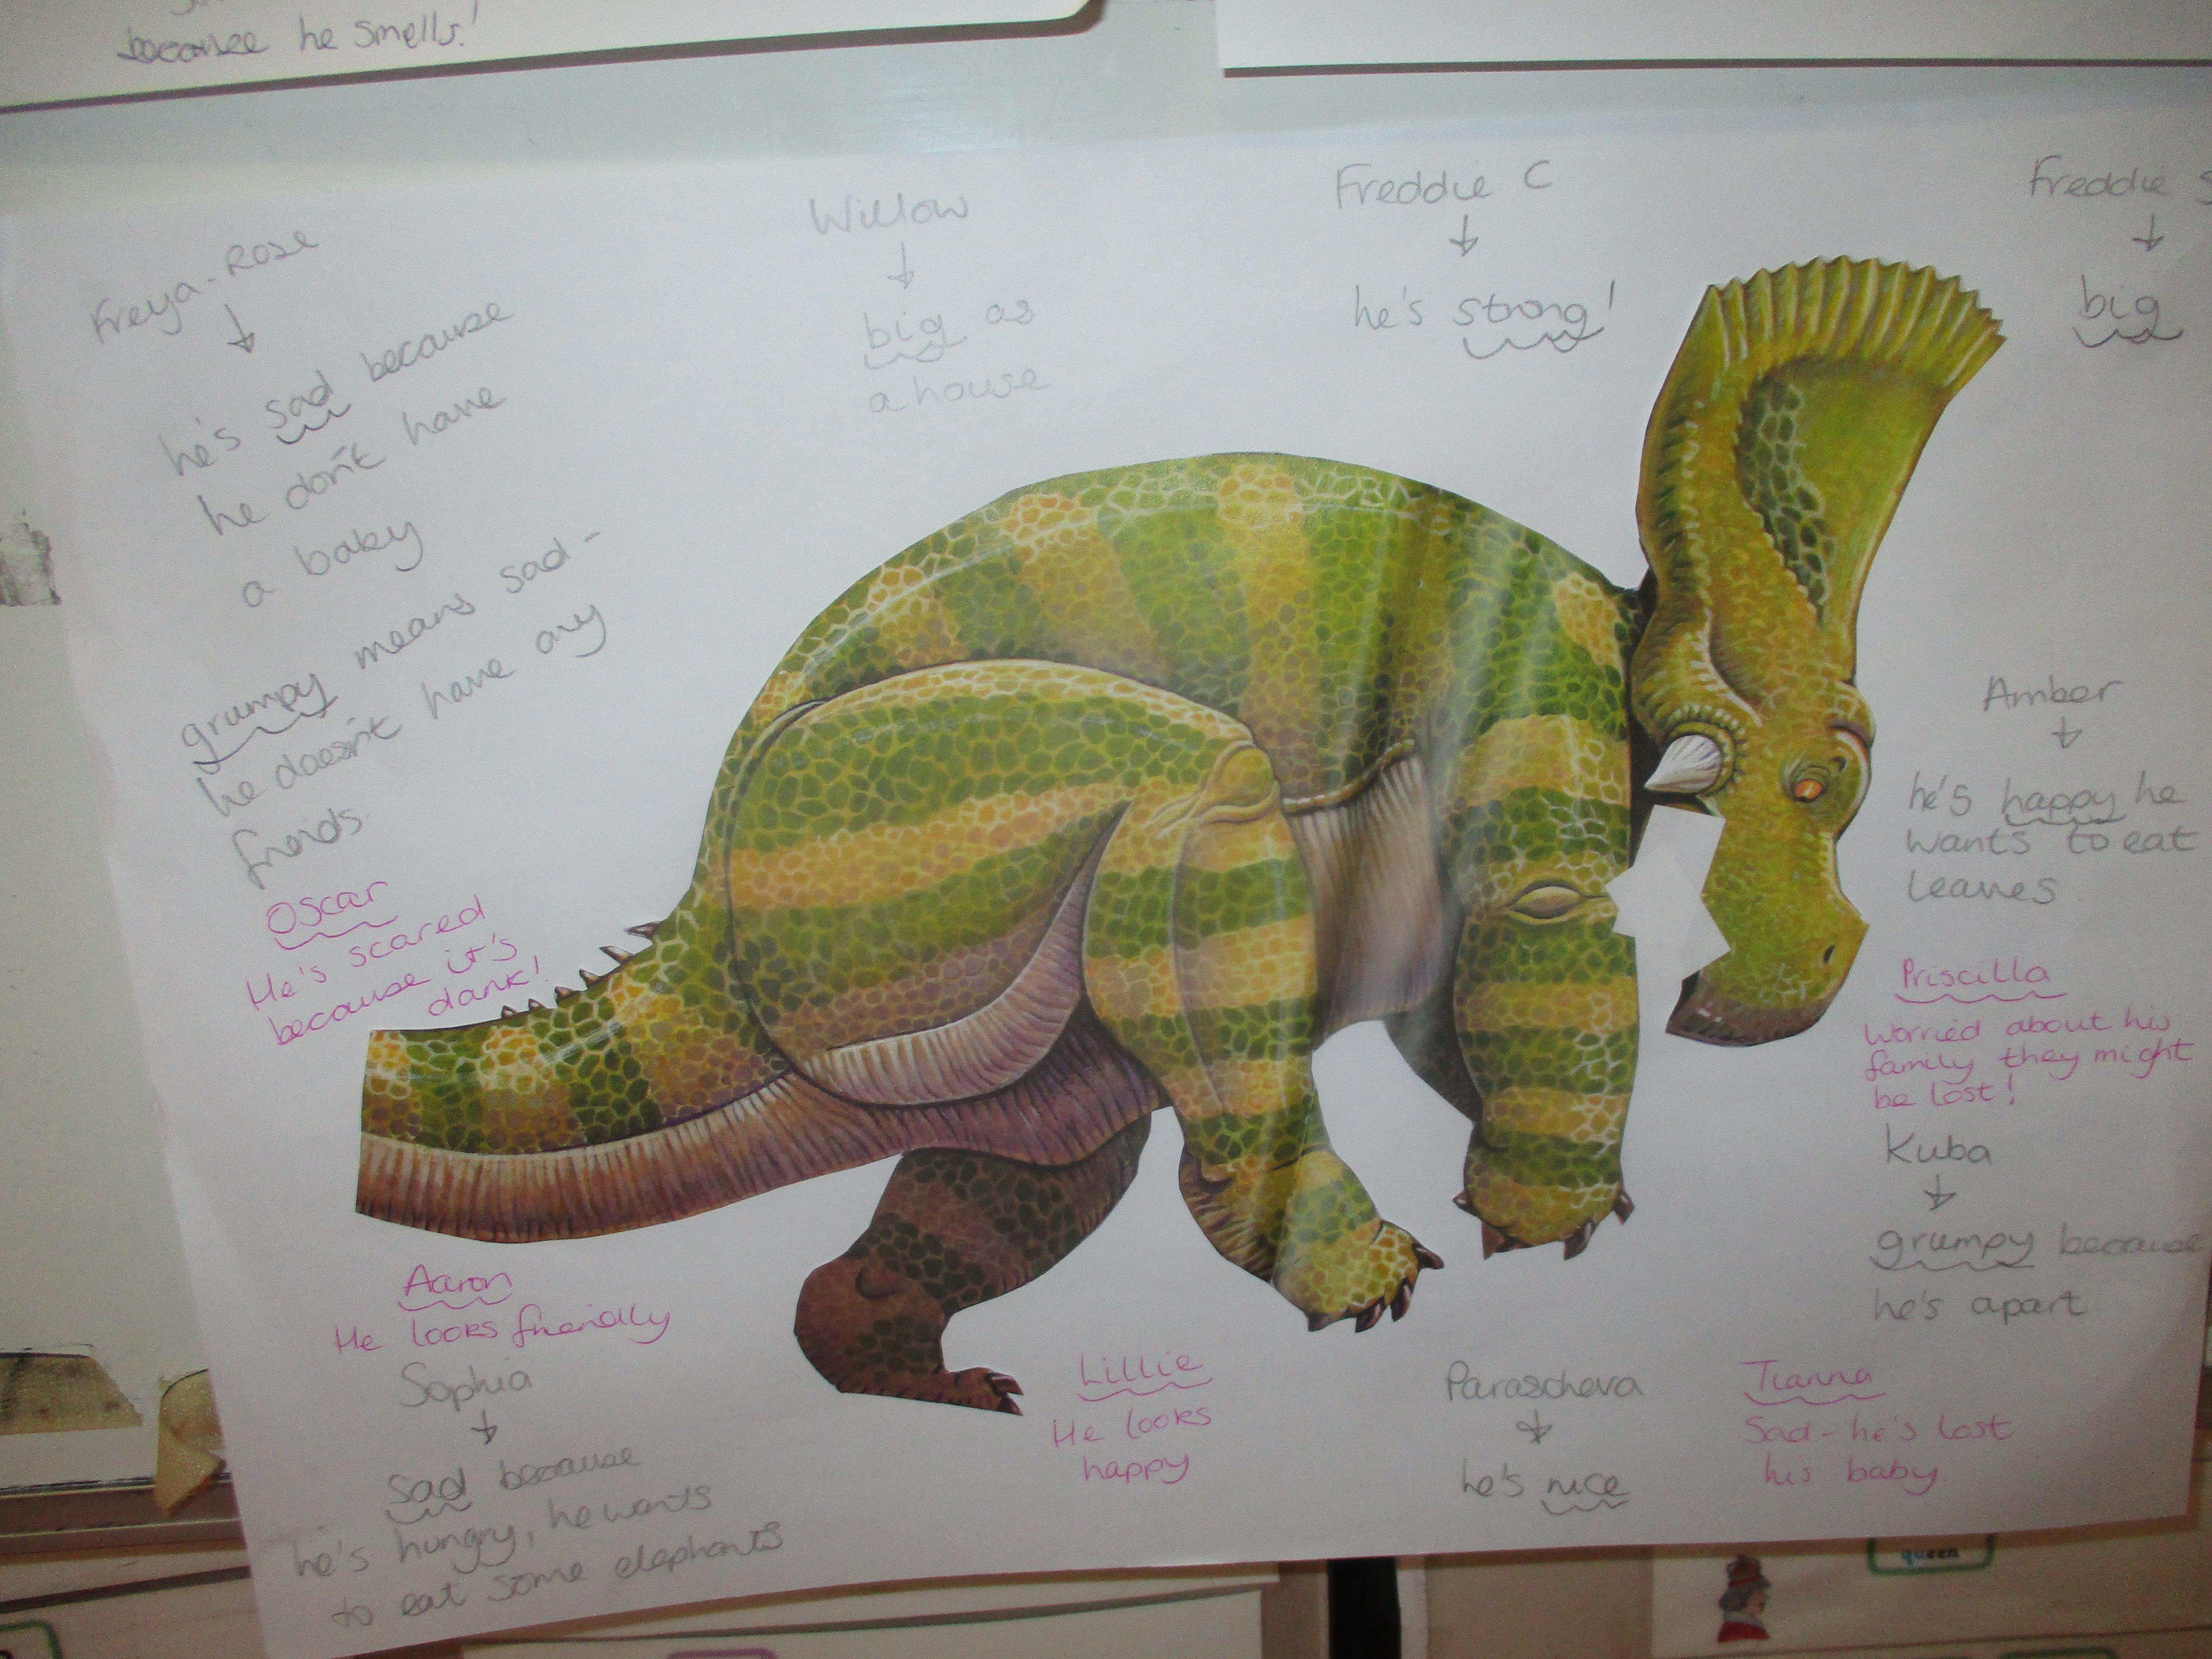 because he smells!
Freya-Rose
he's sad because
he don't have
a baby
grumpy means sad -
he doesn't have any
friends.
Willow
big as
a house
Freddie C
he's strong!
Freddie S
big
Amber
he's happy he
wants to eat
leaves
Oscar
He's scared
because it's
dark!
Priscilla
Worried about his
family they might
be lost!
Kuba
grumpy because
he's apart
Aaron
He looks friendly
Sophia
Sad because
he's hungry, he wants
to eat some elephants
Lillie
He looks
happy
Parascheva
he's nice
Tianna
Sad - he's lost
his baby
queen